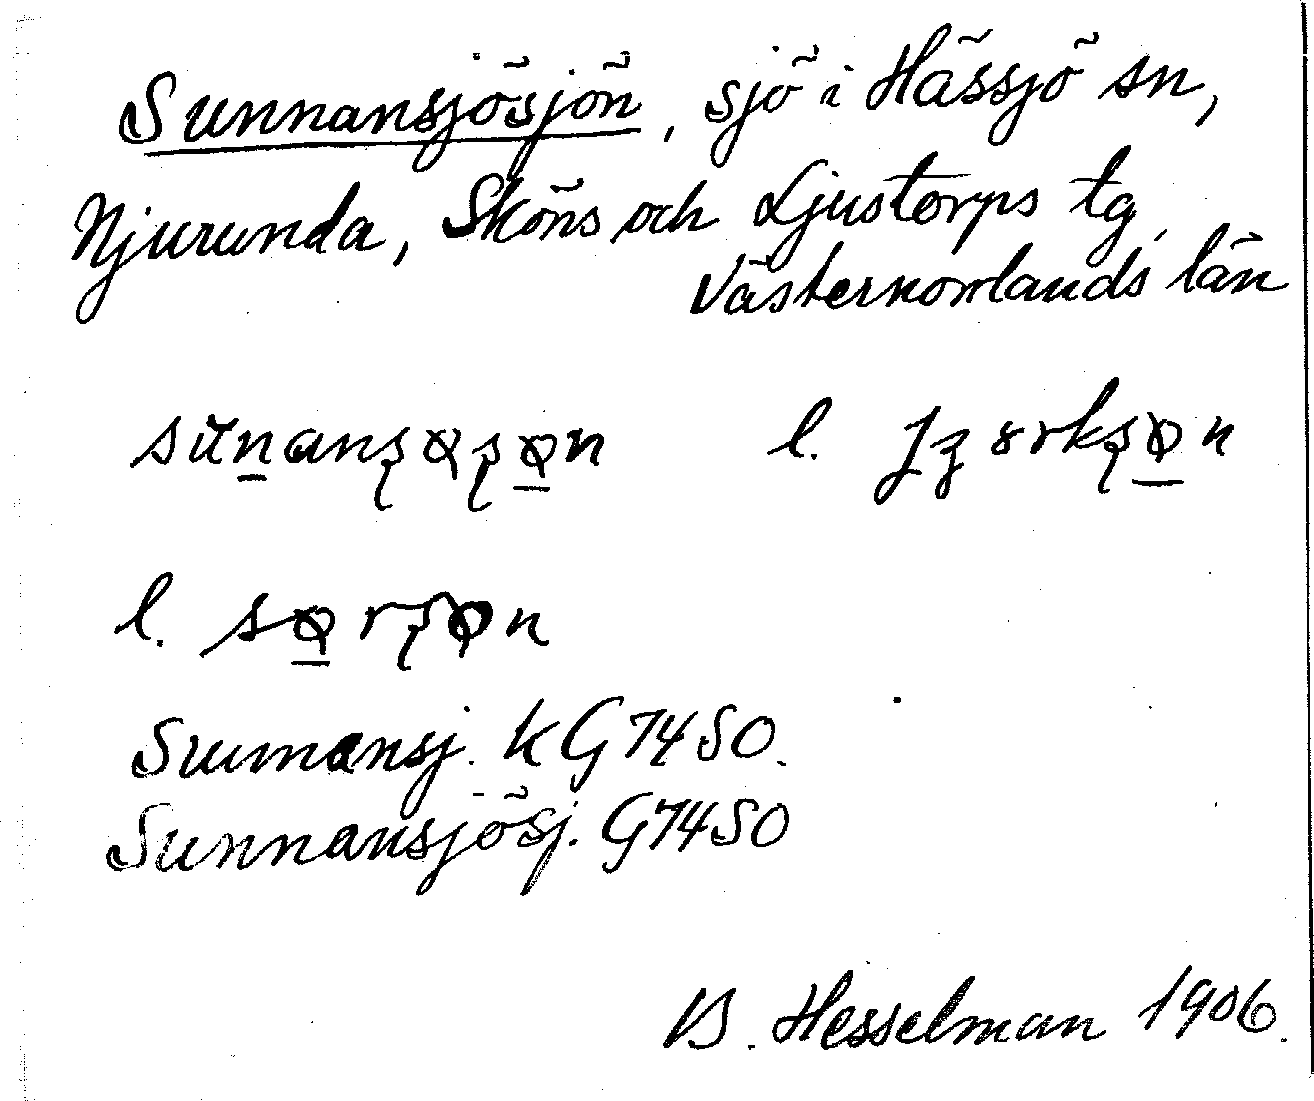 Sunnansjösjön, sjö i Hässjö sn,
Njurunda, Sköns och Ljustorps tg,
Västernorrlands län
l.
l.
Sunnansj. k G 7450.
Sunnansjösj. G 7450
B. Hesselman 1906.